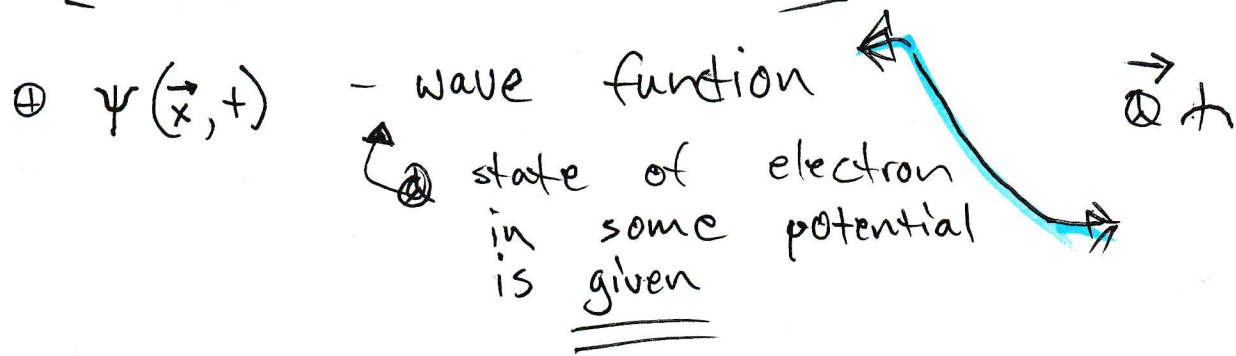 ⊕ ψ(x⃗, t) - wave function
state of electron
in some potential
is given